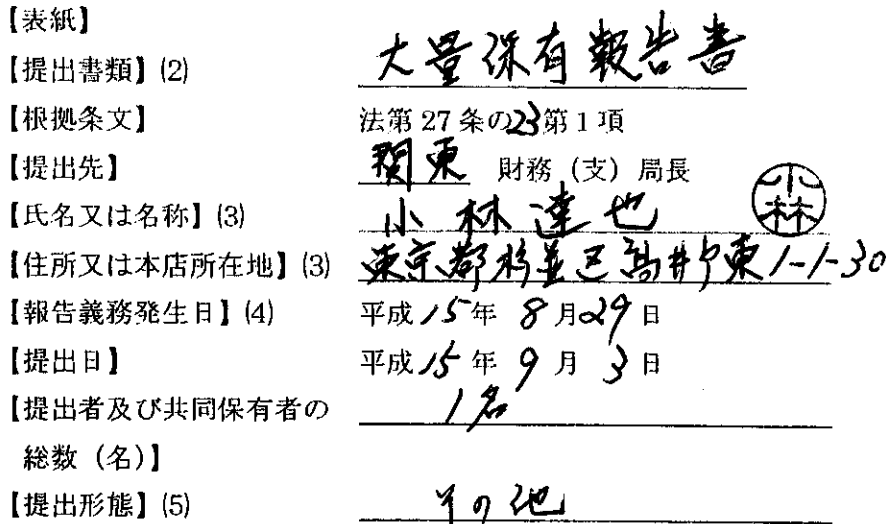 【表紙】
【提出書類】(2) 大量保有報告書
【根拠条文】 法第27条の23第1項
【提出先】 関東 財務(支)局長
【氏名又は名称】(3) 小林達也 小林
【住所又は本店所在地】(3) 東京都杉並区高井戸東1-1-30
【報告義務発生日】(4) 平成15年8月29日
【提出日】 平成15年9月3日
【提出者及び共同保有者の 1名
総数(名)】
【提出形態】(5) その他